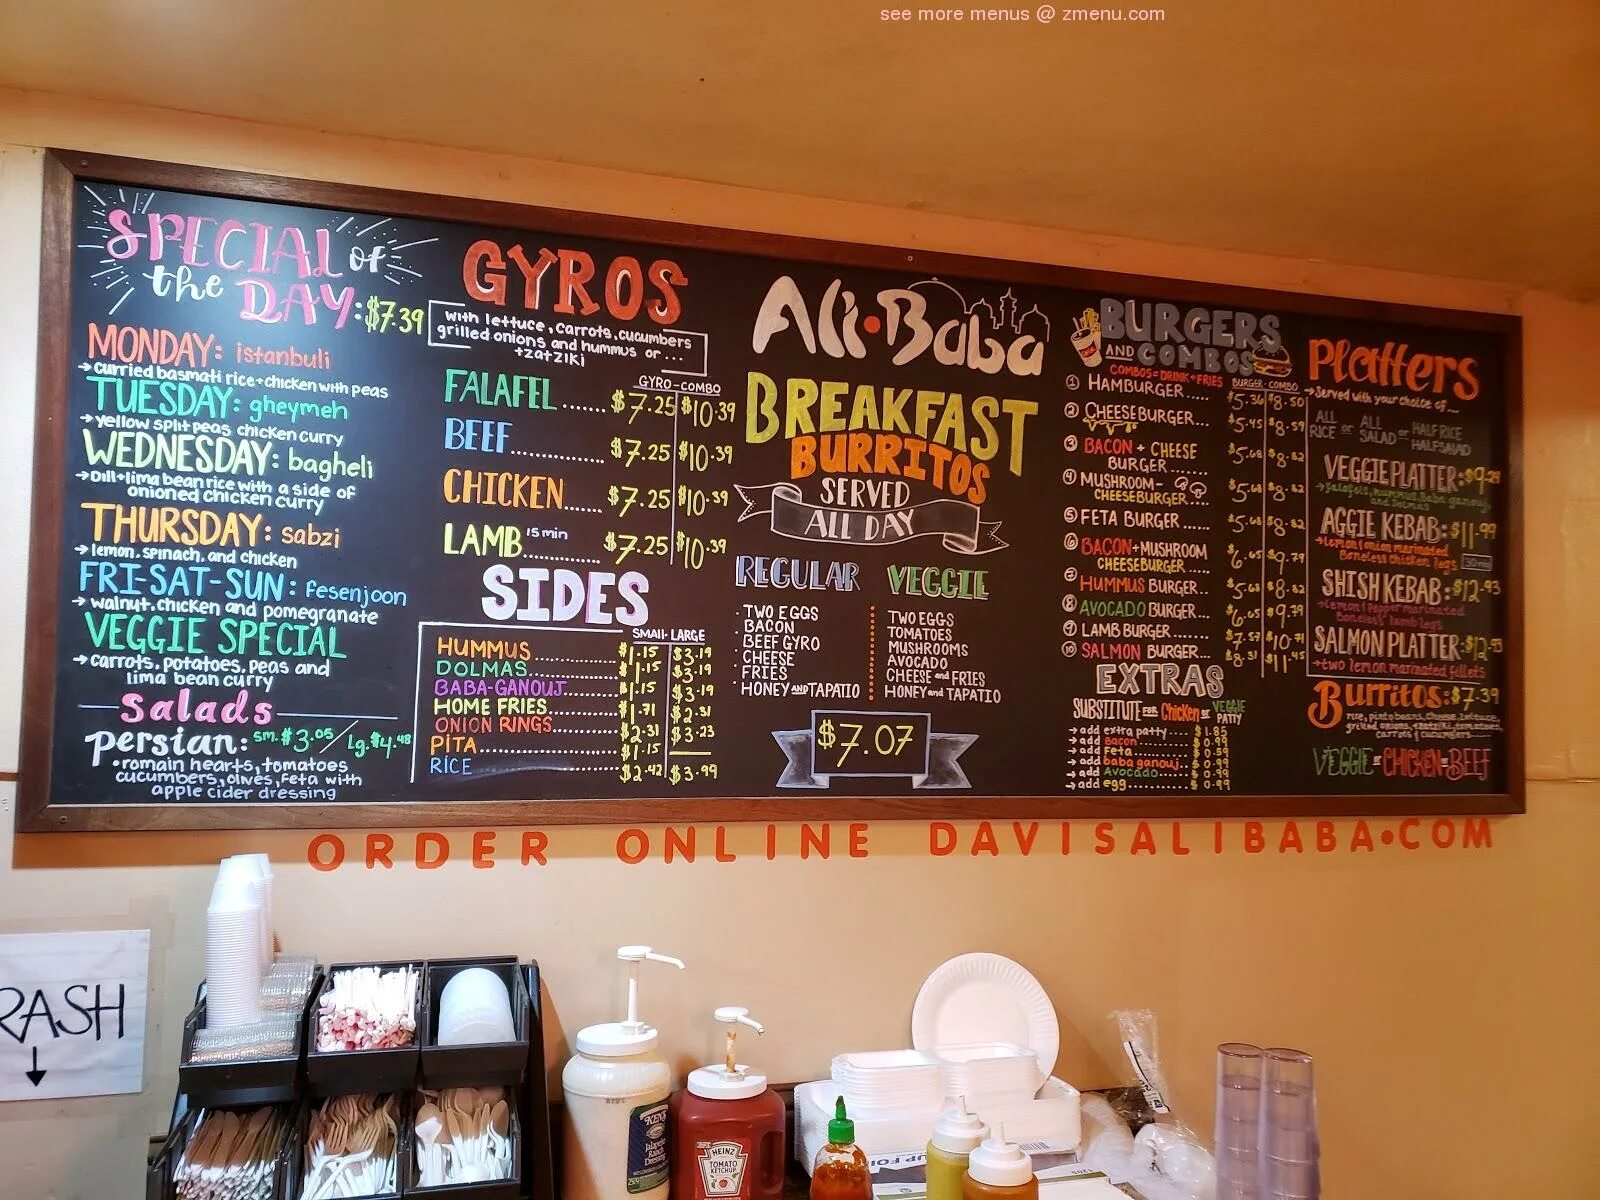 see more menus @ zmenu.com
SPECIAL of
the DAY: $7.39
MONDAY: istanbuli
→ curried basmati rice + chicken with peas
TUESDAY: gheymeh
→ yellow split peas chicken curry
WEDNESDAY: bagheli
→ Dill + lima bean rice with a side of
onioned chicken curry
THURSDAY: sabzi
→ lemon, spinach, and chicken
FRI-SAT-SUN: Fesenjoon
→ walnut, chicken and pomegranate
VEGGIE SPECIAL
→ carrots, potatoes, peas and
lima bean curry
Salads
persian: sm. $3.05 / lg. $4.48
• romain hearts, tomatoes
cucumbers, olives, Feta with
apple cider dressing
GYROS
with lettuce, carrots, cucumbers
grilled onions and hummus or ...
+zatziki
GYRO-COMBO
FALAFEL ...... $7.25 $10.39
BEEF ...... $7.25 $10.39
CHICKEN ...... $7.25 $10.39
LAMB 15 min $7.25 $10.39
SIDES
SMALL-LARGE
HUMMUS ...... $1.15 $3.19
DOLMAS ...... $1.15 $3.19
BABA-GANOUJ ...... $1.15 $3.19
HOME FRIES ...... $1.71 $2.31
ONION RINGS ...... $2.31 $3.23
PITA ...... $1.15
RICE ...... $2.42 $3.99
Ali•Baba
BREAKFAST
BURRITOS
SERVED
ALL DAY
REGULAR
• TWO EGGS
BACON
• BEEF GYRO
• CHEESE
• FRIES
• HONEY AND TAPATIO
VEGGIE
TWO EGGS
TOMATOES
MUSHROOMS
AVOCADO
CHEESE and FRIES
HONEY and TAPATIO
$7.07
BURGERS
AND COMBOS
COMBOS = DRINK + FRIES BURGER-COMBO
① HAMBURGER ..... $5.36 $8.50
② CHEESEBURGER ... $5.45 $8.59
③ BACON + CHEESE
BURGER ...... $5.68 $8.82
④ MUSHROOM-
CHEESEBURGER ... $5.68 $8.82
⑤ FETA BURGER ...... $5.68 $8.82
⑥ BACON + MUSHROOM
CHEESEBURGER ..... $6.65 $9.79
⑦ HUMMUS BURGER ... $5.68 $8.82
⑧ AVOCADO BURGER ... $6.65 $9.79
⑨ LAMB BURGER ...... $7.57 $10.71
⑩ SALMON BURGER ... $8.31 $11.45
EXTRAS
SUBSTITUTE FOR Chicken or VEGGIE
PATTY
→ add extra patty ... $1.85
→ add Bacon ...... $0.99
→ add Feta ...... $0.59
→ add baba ganouj .. $0.99
→ add Avocado ...... $0.99
→ add egg ...... $0.99
Platters
→ Served with your choice of ...
ALL
RICE or ALL
SALAD or HALF RICE
HALF SALAD
VEGGIE PLATTER: $9.29
→ falafels, hummus, baba ganouj,
and dolmas
AGGIE KEBAB: $11.99
→ lemon/onion marinated
Boneless chicken legs
30 min
SHISH KEBAB: $12.93
→ lemon/pepper marinated
Boneless lamb legs
SALMON PLATTER: $12.93
→ two lemon marinated fillets
Burritos: $7.39
rice, pinto beans, cheese, lettuce,
grilled onions, tzatziki, tomatoes,
carrots & cucumbers
VEGGIE or CHICKEN or BEEF
ORDER ONLINE DAVISALIBABA•COM
RASH
↓
KEN'S
Jalapeño
Ranch
Dressing
HEINZ
TOMATO
KETCHUP